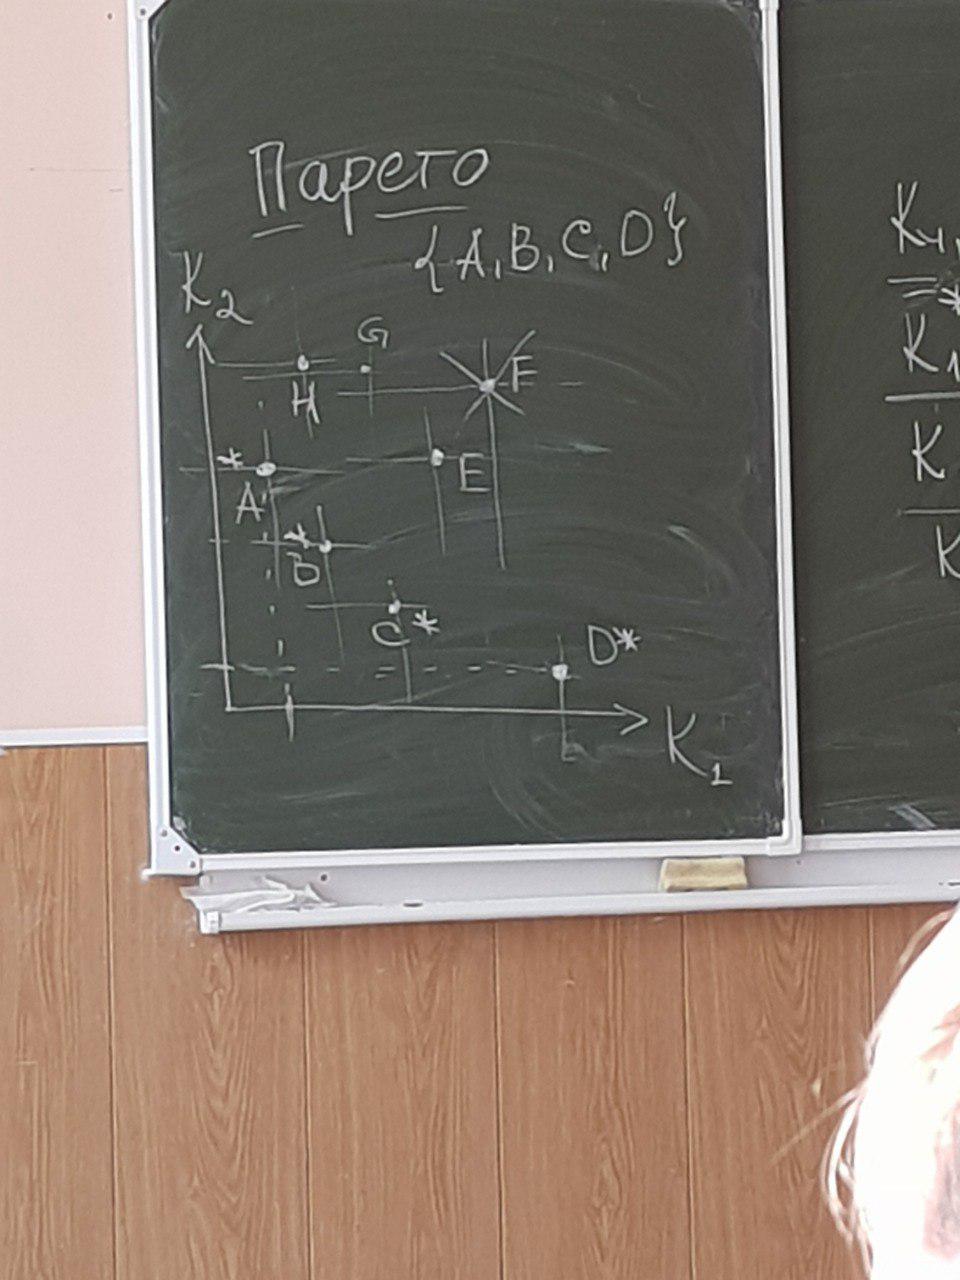 Парето
{A, B, C, D}
K₂
G
H
F
* A
E
* B
C*
D*
K₁
K₁
K
K